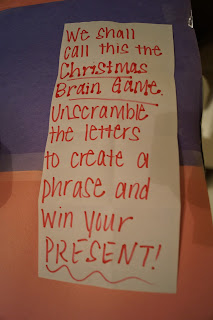 We shall
call this the
Christmas
Brain Game.
Unscramble
the letters
to create a
phrase and
win your
PRESENT!